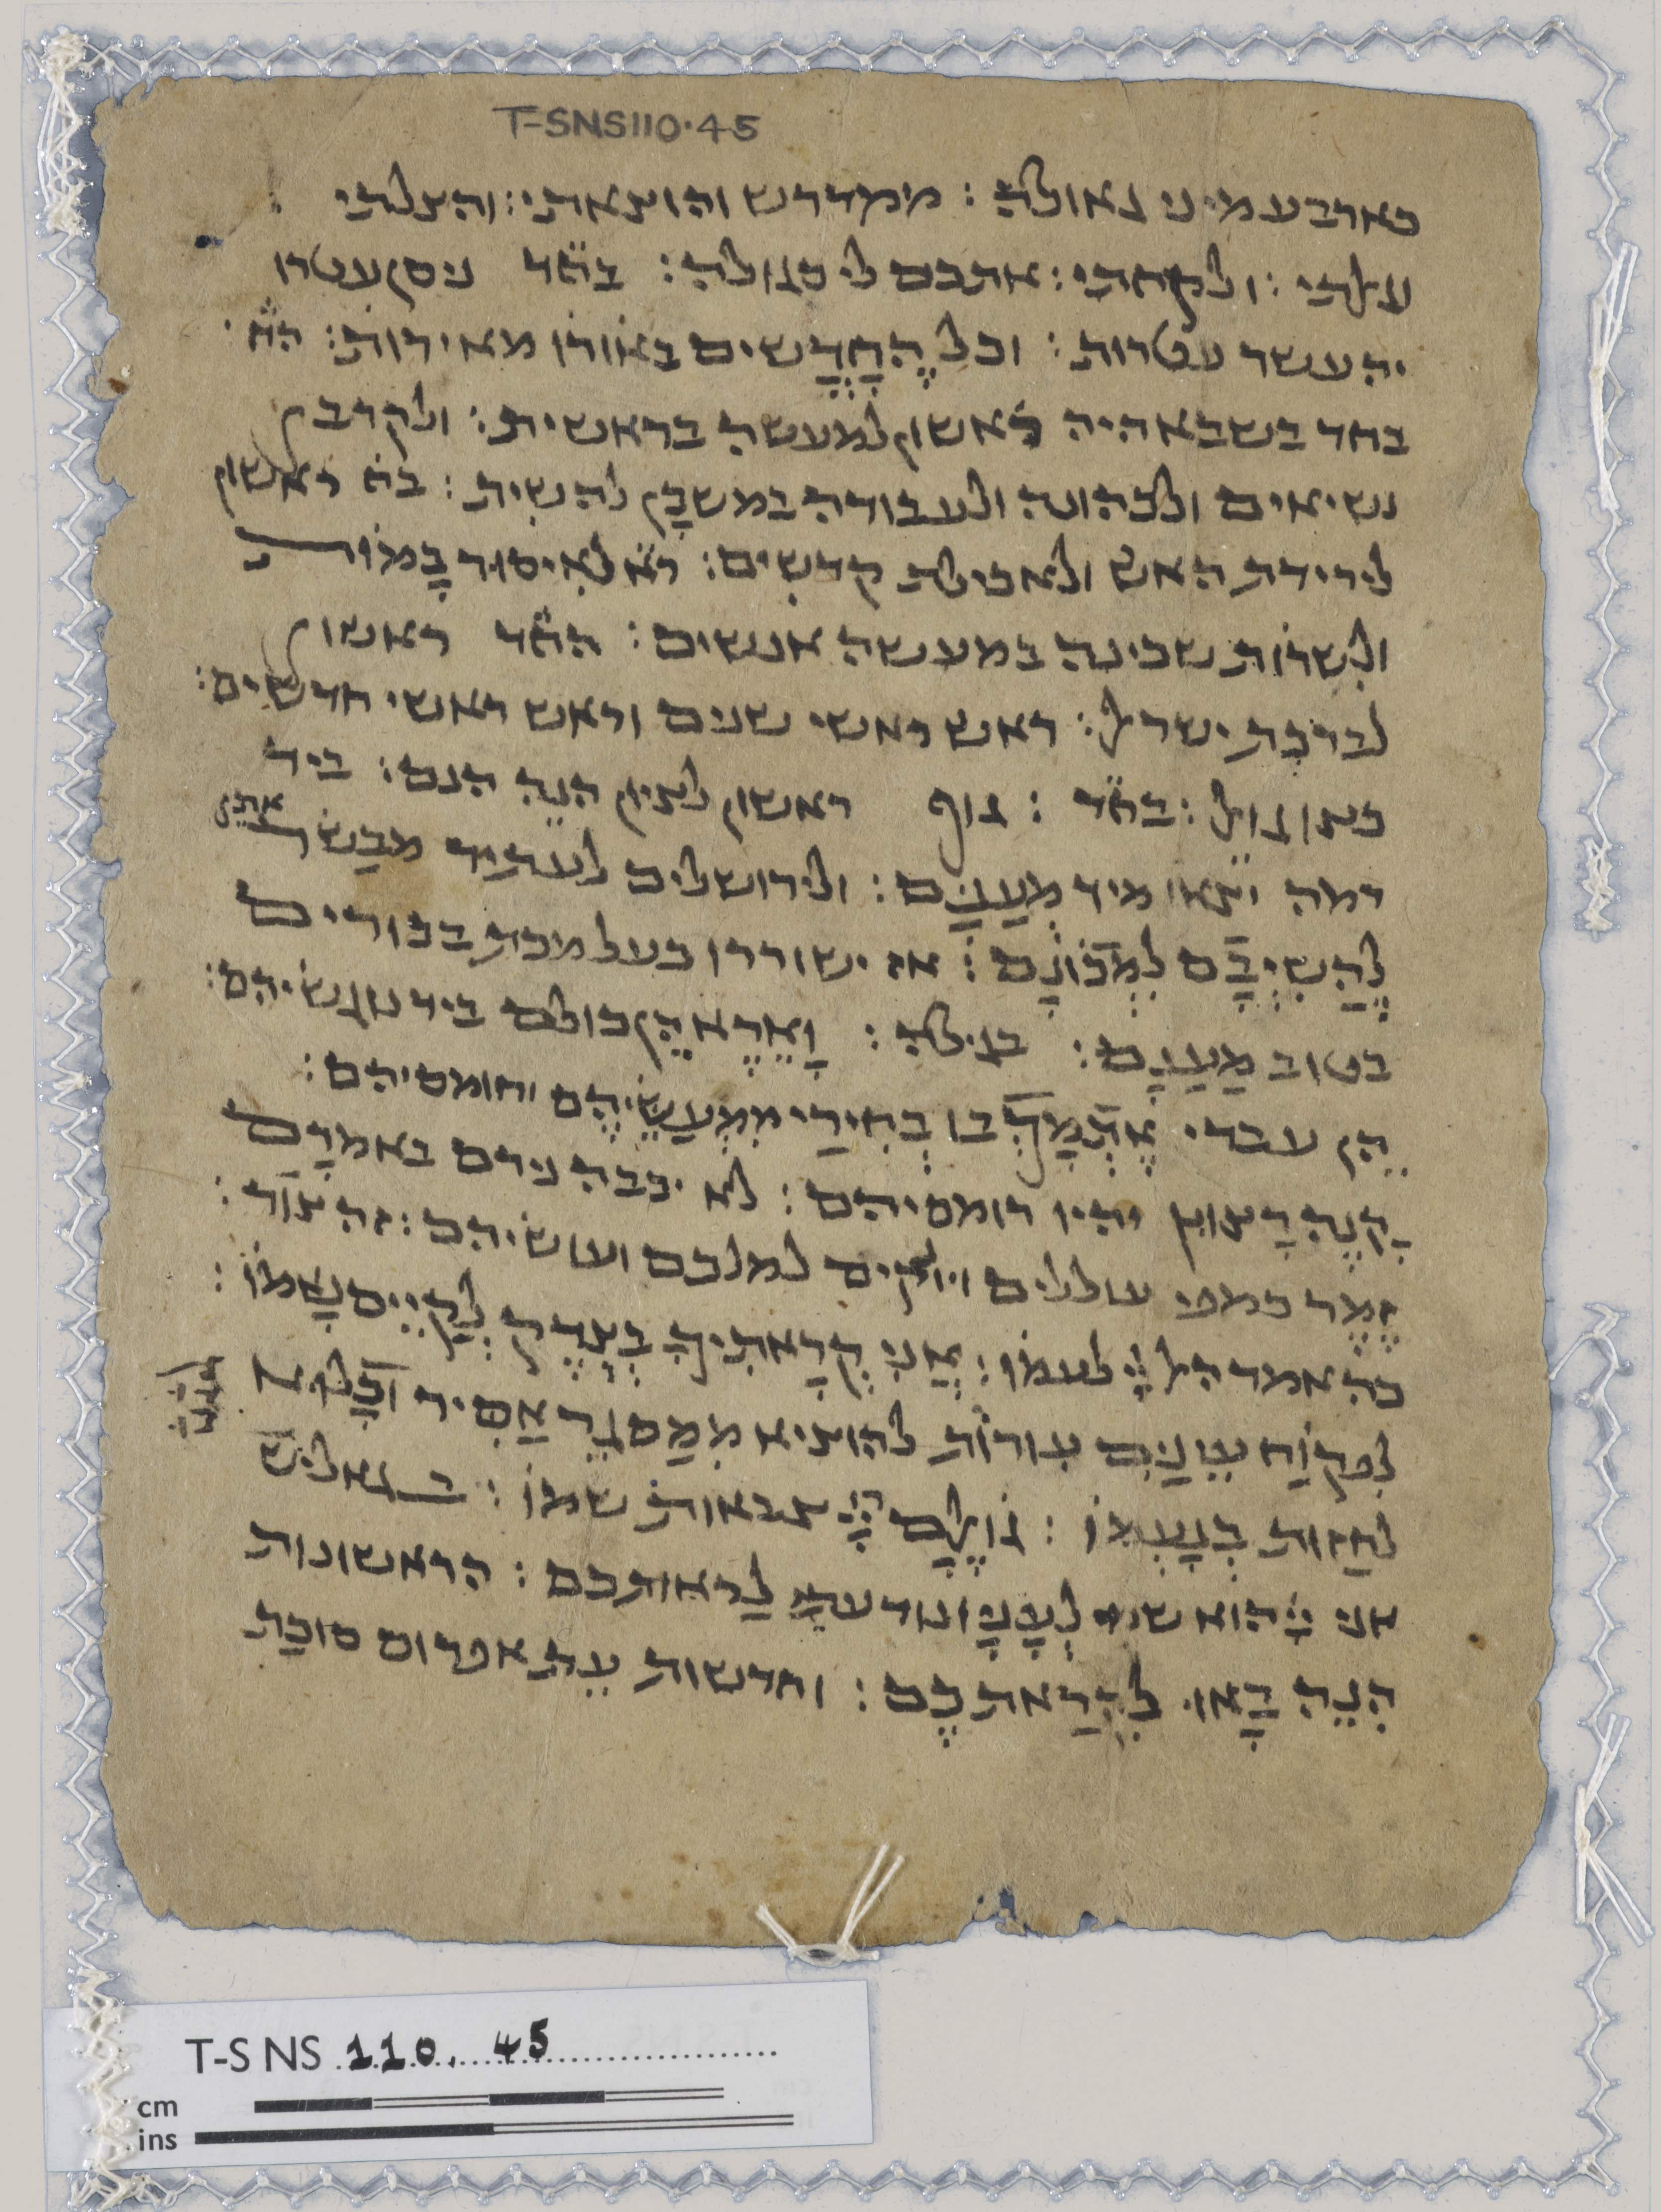 T-SNS110.45
כארבע מיני גאולה : ממדרש והוצאתי : והצלתי :
עילתי : ולקחתי : אתכם לי סגולה : בחד ניסן עטרו
יה עשר עטרות : וכל הֶחֳדָשִים באורו מאירות : הח
בחד בשבא היה ראשון למעשה בראשית : ולקרבן
נשיאים ולכהונה ולעבודה במשכן להשית : בח ראשון
לירידת האש ולאכילת קדשים : רא לאיסור בָמות
ולשרות שכינה במעשה אנשים : החד ראשון
לברכת ישראל : ראש ראשי שנים וראש ראשי חדשים :
בחד : גוף ראשון לציון הנה הנם : ביד
רמה יצאו מיד מְעַנָם : ולירושלים לעתיד מבַשר
אתן
לַהֲשִיבָם לִמְכוֹנָם : אז ישוררו כעל מכת בכורים
בטוב מַעֲנָם : וָאֶרְאֶה הֶן כולם ביד נוגשיהם :
הֵן עבדי אֶתְמָךְ בו בְחִירִי מִמַעֲשֵיהֶם וחומסיהם :
קָנֶה רָצוּץ יהיו רומסיהם : לא יכבה נירם באמרָם
זֶמֶר כמפי עוללים ויונקים למלכם ועושיהם : זה צור :
כה אמר האל יי לעמו : אֲנִי קְרָאתִיךָ בְצֶדֶק לְקַיֵים נָאֳמוֹ :
לִפְקוֹחַ עֵינַיִם עִורות להוציא מִמַסְגֵר אַסִיר וכלוא
לַחֲזות בְנָעֳמוֹ : גוֹאֲלָם יי צבאות שמוֹ :
אני יי הוא שמי לְעָנָיו נודעתי לַראותכם : הראשונות
הִנֵה בָאוּ לִקְרַאתכֶם : וחדשות עֵת אפרוס סוכת
T-S NS 110. 45
cm
ins